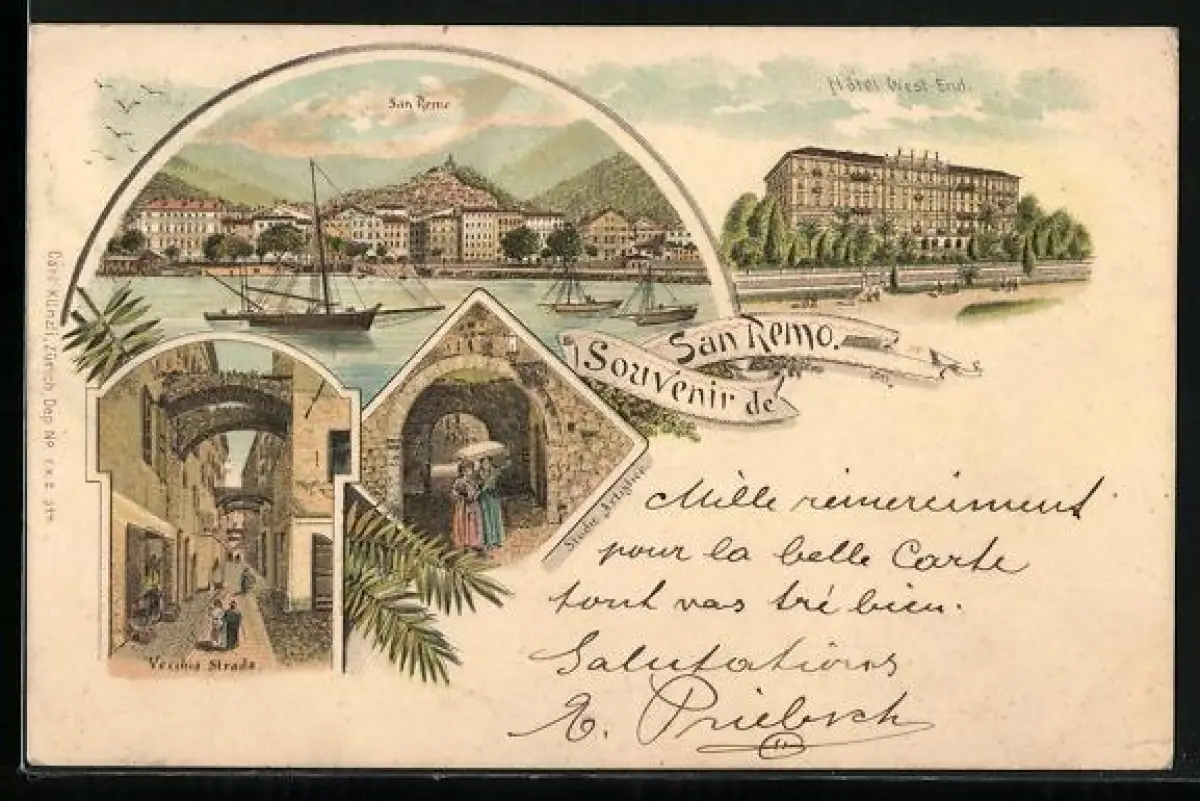 San Remo
Hôtel West-End.
San Remo.
Souvenir de
Vecchia Strada
Mille remerciment
pour la belle Carte
tout vas tré bien.
Salutations
E. Priebsch
Carl Künzli, Zürich Dep. No